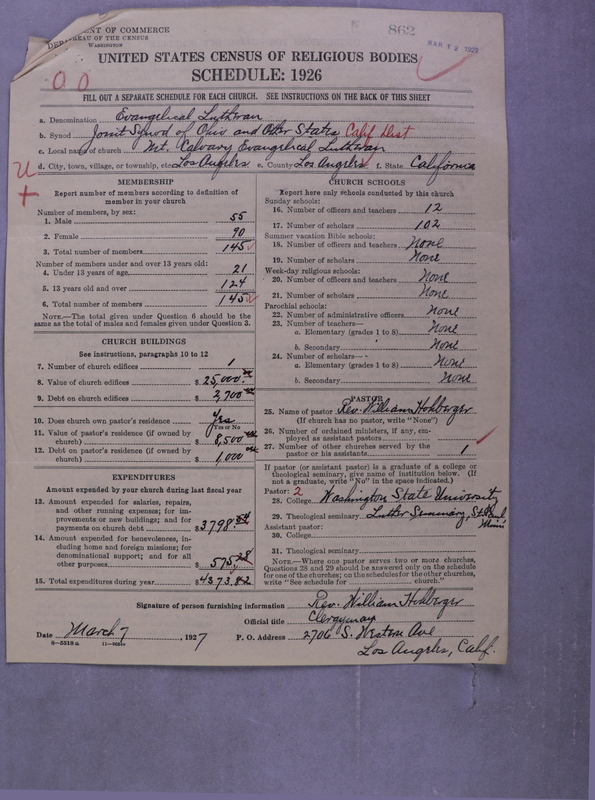 862
MAR 12 1927
DEPARTMENT OF COMMERCE
BUREAU OF THE CENSUS
WASHINGTON
UNITED STATES CENSUS OF RELIGIOUS BODIES
SCHEDULE: 1926
00
FILL OUT A SEPARATE SCHEDULE FOR EACH CHURCH. SEE INSTRUCTIONS ON THE BACK OF THIS SHEET
a. Denomination Evangelical Lutheran
b. Synod Joint Synod of Ohio and Other States Calif Dist
c. Local name of church Mt. Calvary Evangelical Lutheran
d. City, town, village, or township, etc Los Angeles e. County Los Angeles f. State California
MEMBERSHIP
Report number of members according to definition of
member in your church
Number of members, by sex:
1. Male 55
2. Female 90
3. Total number of members 145
Number of members under and over 13 years old:
4. Under 13 years of age 21
5. 13 years old and over 124
6. Total number of members 145
NOTE.—The total given under Question 6 should be the
same as the total of males and females given under Question 3.
CHURCH BUILDINGS
See instructions, paragraphs 10 to 12
7. Number of church edifices 1
8. Value of church edifices $25,000.
9. Debt on church edifices $2,700
10. Does church own pastor's residence? Yes
Yes or No
11. Value of pastor's residence (if owned by
church) $8,500
12. Debt on pastor's residence (if owned by
church) $1,000
EXPENDITURES
Amount expended by your church during last fiscal year
13. Amount expended for salaries, repairs,
and other running expenses; for im-
provements or new buildings; and for
payments on church debt $3798.54
14. Amount expended for benevolences, in-
cluding home and foreign missions; for
denominational support; and for all
other purposes $575.28
15. Total expenditures during year $4373.82
CHURCH SCHOOLS
Report here only schools conducted by this church
Sunday schools:
16. Number of officers and teachers 12
17. Number of scholars 102
Summer vacation Bible schools:
18. Number of officers and teachers None
19. Number of scholars None
Week-day religious schools:
20. Number of officers and teachers None
21. Number of scholars None
Parochial schools:
22. Number of administrative officers None
23. Number of teachers—
a. Elementary (grades 1 to 8) None
b. Secondary None
24. Number of scholars—
a. Elementary (grades 1 to 8) None
b. Secondary None
PASTOR
25. Name of pastor Rev. William Hohberger
(If church has no pastor, write "None")
26. Number of ordained ministers, if any, em-
ployed as assistant pastors
27. Number of other churches served by the
pastor or his assistants 1
If pastor (or assistant pastor) is a graduate of a college or
theological seminary, give name of institution below. (If
not a graduate, write "No" in the space indicated.)
Pastor: 2
28. College Washington State University
29. Theological seminary Luther Seminary, St Paul
Minn
Assistant pastor:
30. College
31. Theological seminary
NOTE.—Where one pastor serves two or more churches,
Questions 28 and 29 should be answered only on the schedule
for one of the churches; on the schedules for the other churches,
write "See schedule for church."
Signature of person furnishing information Rev. William Hohberger
Official title Clergyman
Date March 7, 1927 P. O. Address 2706 S. Western Ave
Los Angeles, Calif.